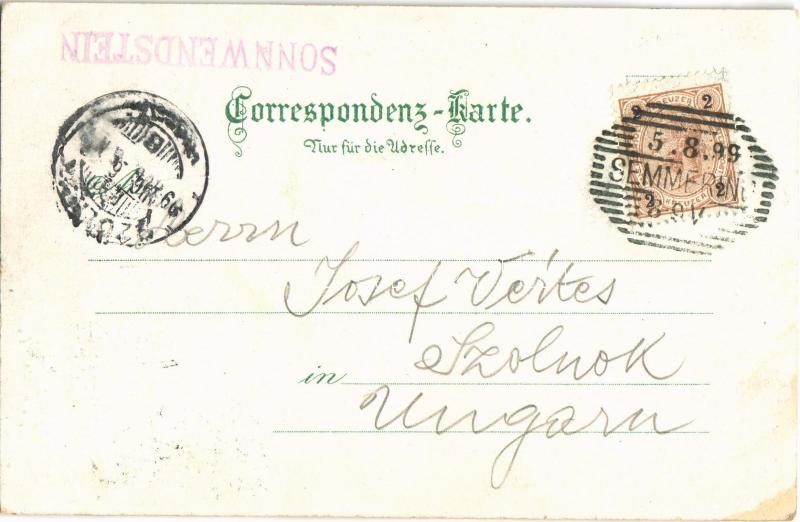 SONNWENDSTEIN
Correspondenz-Karte.
Nur für die Adresse.
2 KREUZER 2
5.8.99
SEMMERING
2 2
Herrn
Josef Vértes
in Szolnok
Ungarn